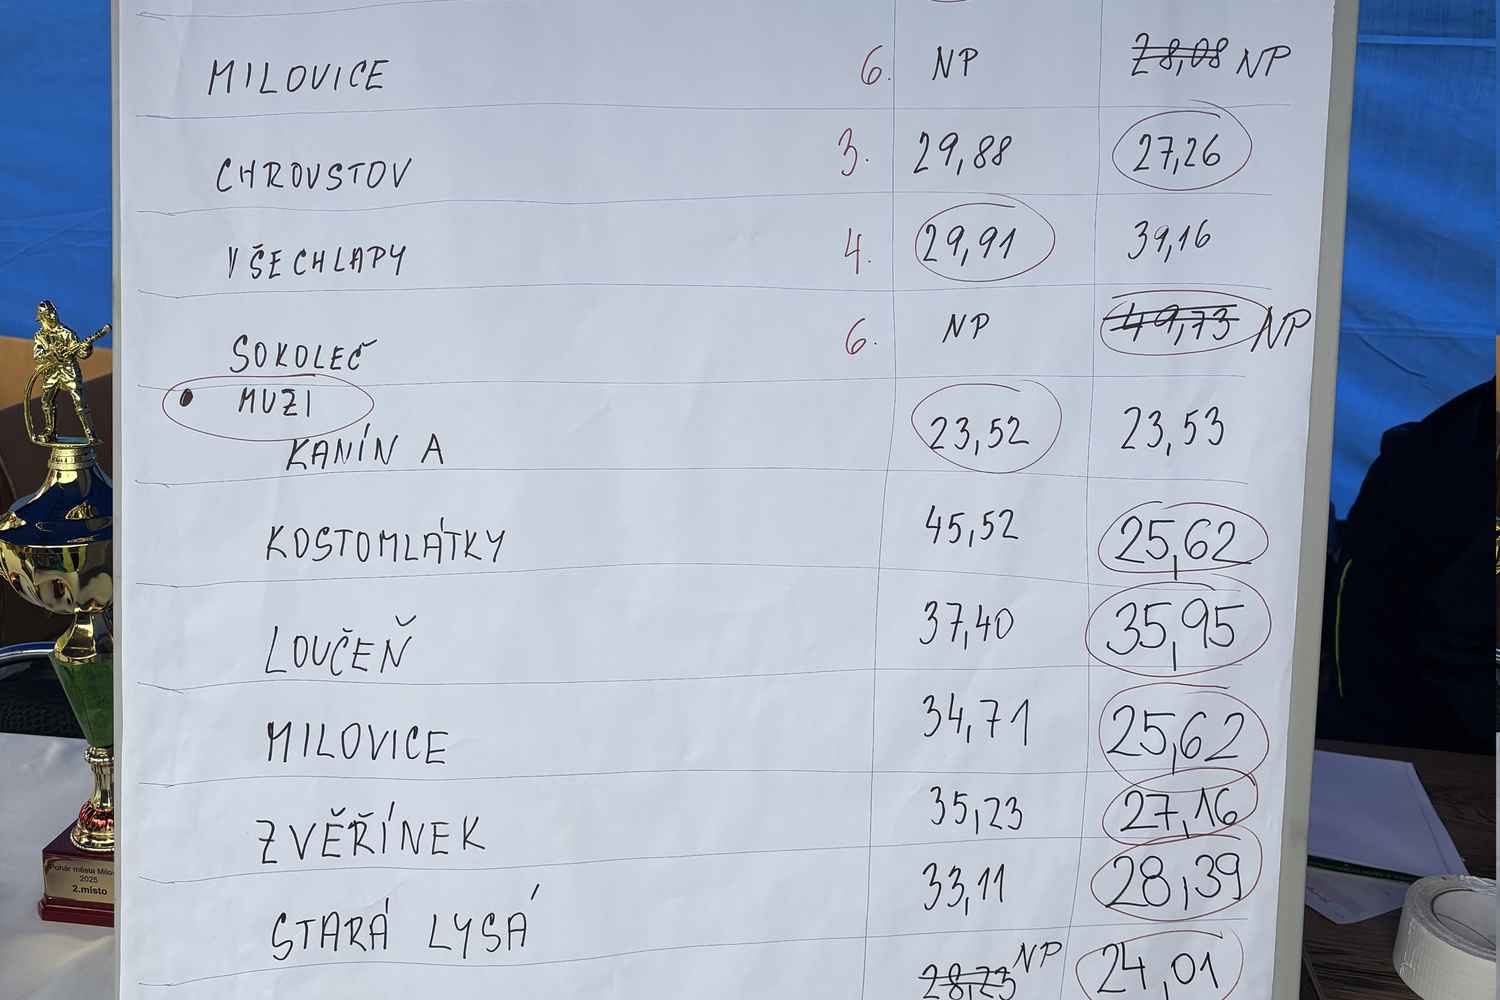 MILOVICE 6. NP 28,08 NP
CHROUSTOV 3. 29,88 27,26
VŠECHLAPY 4. 29,91 39,16
SOKOLEČ 6. NP 49,73 NP
MUŽI
KANÍN A 23,52 23,53
KOSTOMLÁTKY 45,52 25,62
LOUČEŇ 37,40 35,95
MILOVICE 34,71 25,62
ZVĚŘÍNEK 35,23 27,16
STARÁ LYSÁ 33,11 28,39
28,23 NP 24,01
Pohár města Milo
2025
2.místo